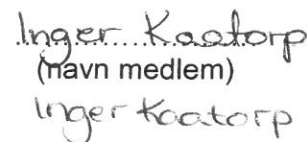 Inger Kaatorp
(navn medlem)
Inger Kaatorp